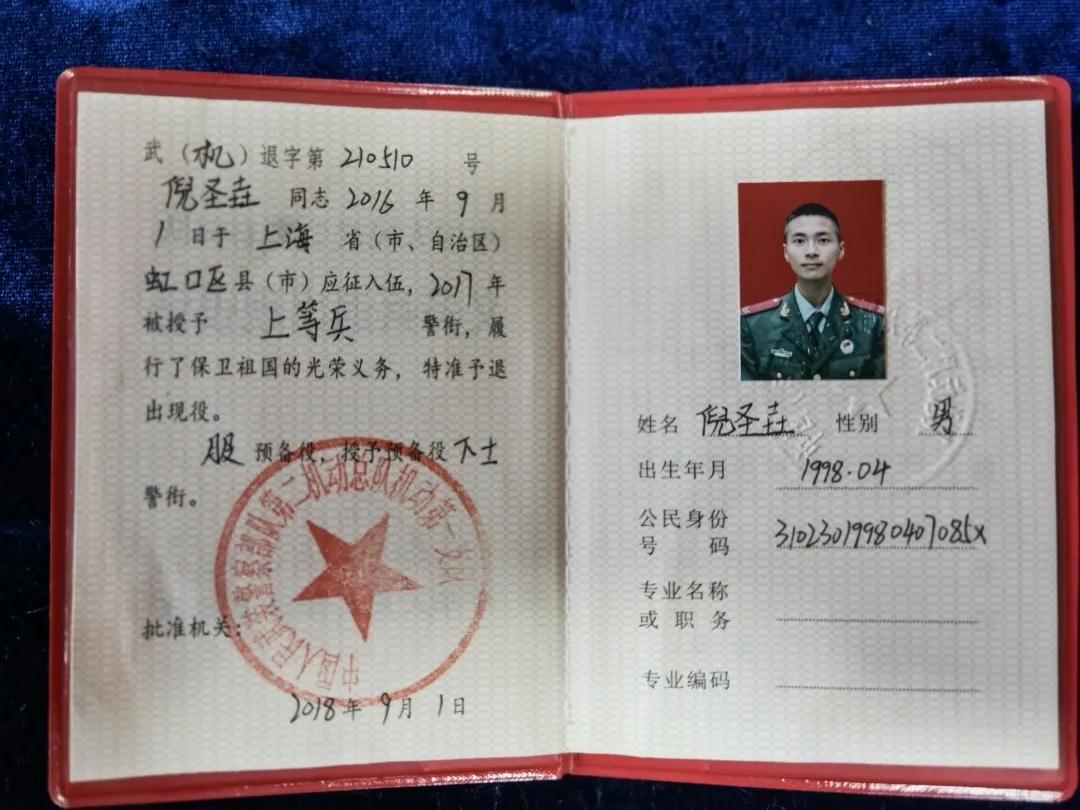 武（机）退字第 210510 号
倪圣垚 同志 2016 年 9 月
1 日于 上海 省（市、自治区）
虹口区县（市）应征入伍，2017 年
被授予 上等兵 警衔，履
行了保卫祖国的光荣义务，特准予退
出现役。
服 预备役，授予预备役 下士
警衔。
中国人民武装警察部队第二机动总队机动第一支队
批准机关：
2018 年 9 月 1 日
姓名 倪圣垚 性别 男
出生年月 1998.04
公民身份
号码 31023019980407085x
专业名称
或职务
专业编码